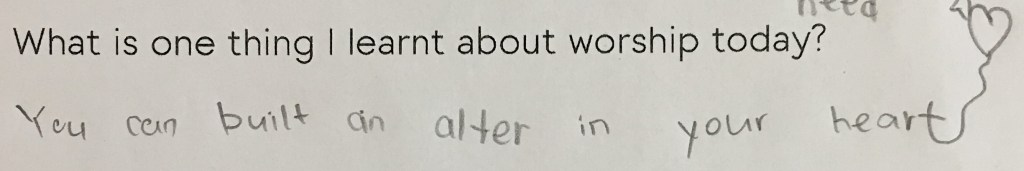 need
What is one thing I learnt about worship today?
You can built an alter in your heart